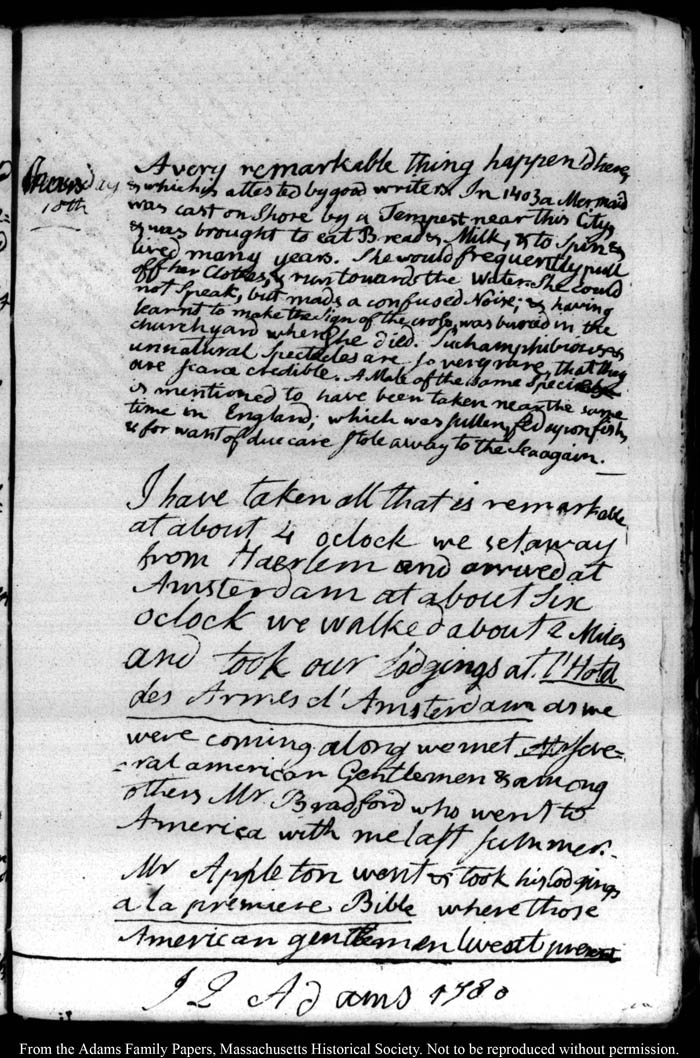 Thursday
10th
A very remarkable thing happen'd here,
& which is attested by good writers. In 1403 a Mermaid
was cast on Shore by a Tempest near this City
& was brought to eat Bread & Milk, & to Spin &
lived many years. She would frequently pull
off her Clothes, & run toward the Water. She could
not Speak, but made a confused Noise; & having
learnt to make the Sign of the cross, was buried in the
churchyard where she died. Such amphibious &
unnatural Spectacles are so very rare, that they
are scarce credible. A Male of the same Species
is mentioned to have been taken near the same
time in England; which was sullen, fed upon fish,
& for want of due care stole away to the Sea again.
I have taken all that is remarkable
at about 4 oclock we set away
from Haerlem and arrived at
Amsterdam at about Six
oclock we walked about 2 Miles
and took our lodgings at l'Hotel
des Armes d'Amsterdam as we
were coming along we met seve=
=ral american Gentlemen & among
others Mr. Bradford who went to
America with me last summer.
Mr Appleton went & took his lodgings
a la premiere Bible where those
American gentlemen live at present
J Q Adams 1780
From the Adams Family Papers, Massachusetts Historical Society. Not to be reproduced without permission.